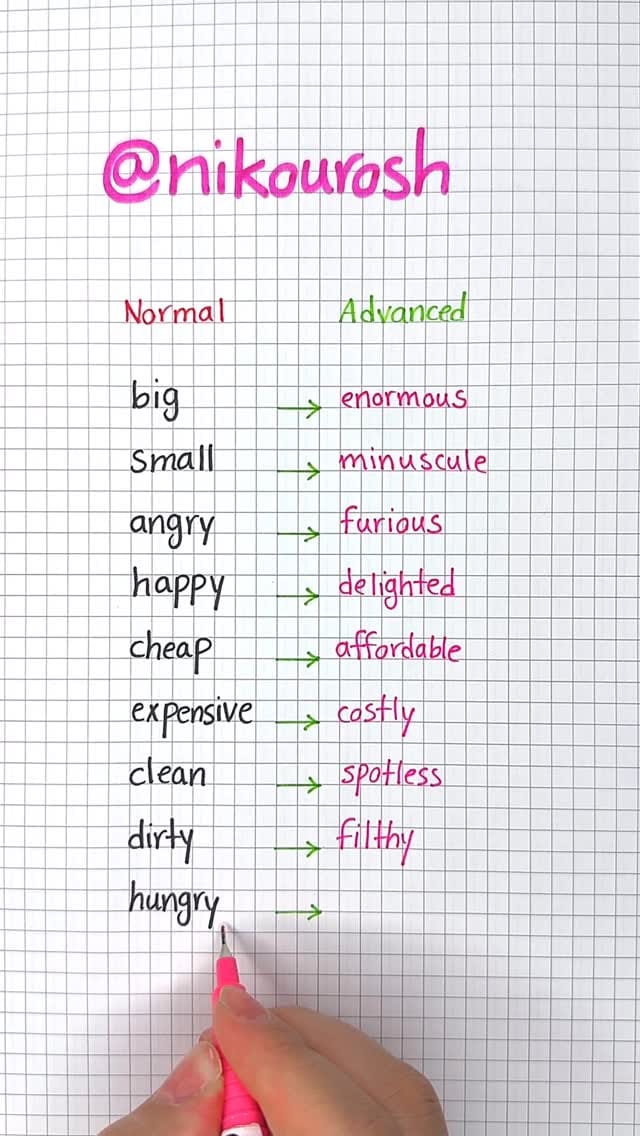 @nikourosh
Normal Advanced
big → enormous
small → minuscule
angry → furious
happy → delighted
cheap → affordable
expensive → costly
clean → spotless
dirty → filthy
hungry →